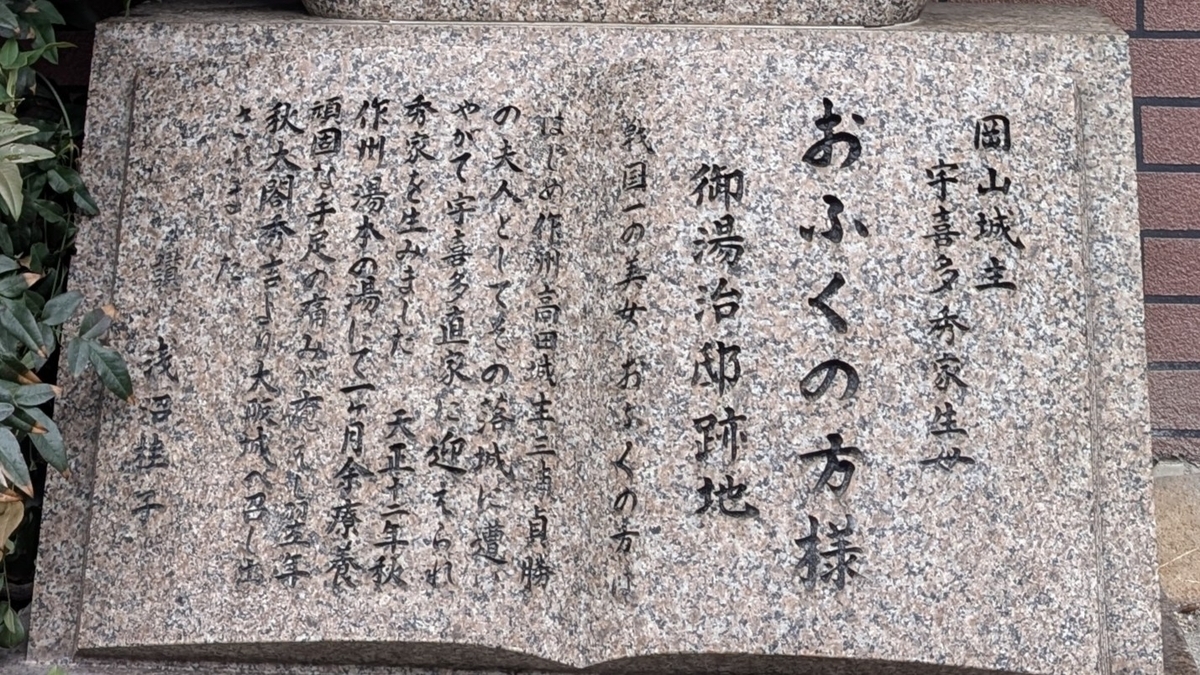 岡山城主
宇喜多秀家生母
おふくの方様
御湯治邸跡地
戦国一の美女おふくの方は
はじめ作州高田城主三浦貞勝
の夫人としてその落城に遭い
やがて宇喜多直家に迎えられ
秀家を生みました 天正十二年秋
作州湯本の湯にて一ヶ月余療養
頑固な手足の痛みが癒えし翌年
秋太閤秀吉より大阪城へ召し出
されました
浅沼桂子